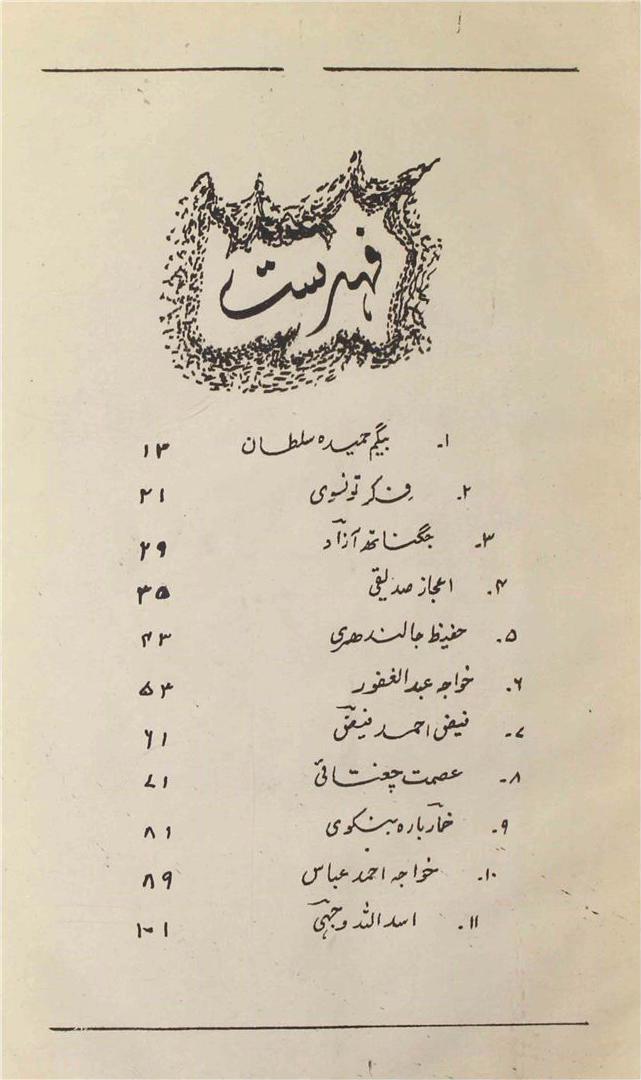 فہرست
۱۔ بیگم حمیدہ سلطان ۱۳
۲۔ فکر تونسوی ۲۱
۳۔ جگناتھ آزادؔ ۲۹
۴۔ اعجاز صدیقی ۳۵
۵۔ حفیظ جالندھری ۴۳
۶۔ خواجہ عبدالغفور ۵۳
۷۔ فیض احمد فیضؔ ۶۱
۸۔ عصمت چغتائی ۷۱
۹۔ خمارؔ بارہ بنکوی ۸۱
۱۰۔ خواجہ احمد عباس ۸۹
۱۱۔ اسد اللہ وجہیؔ ۱۰۱